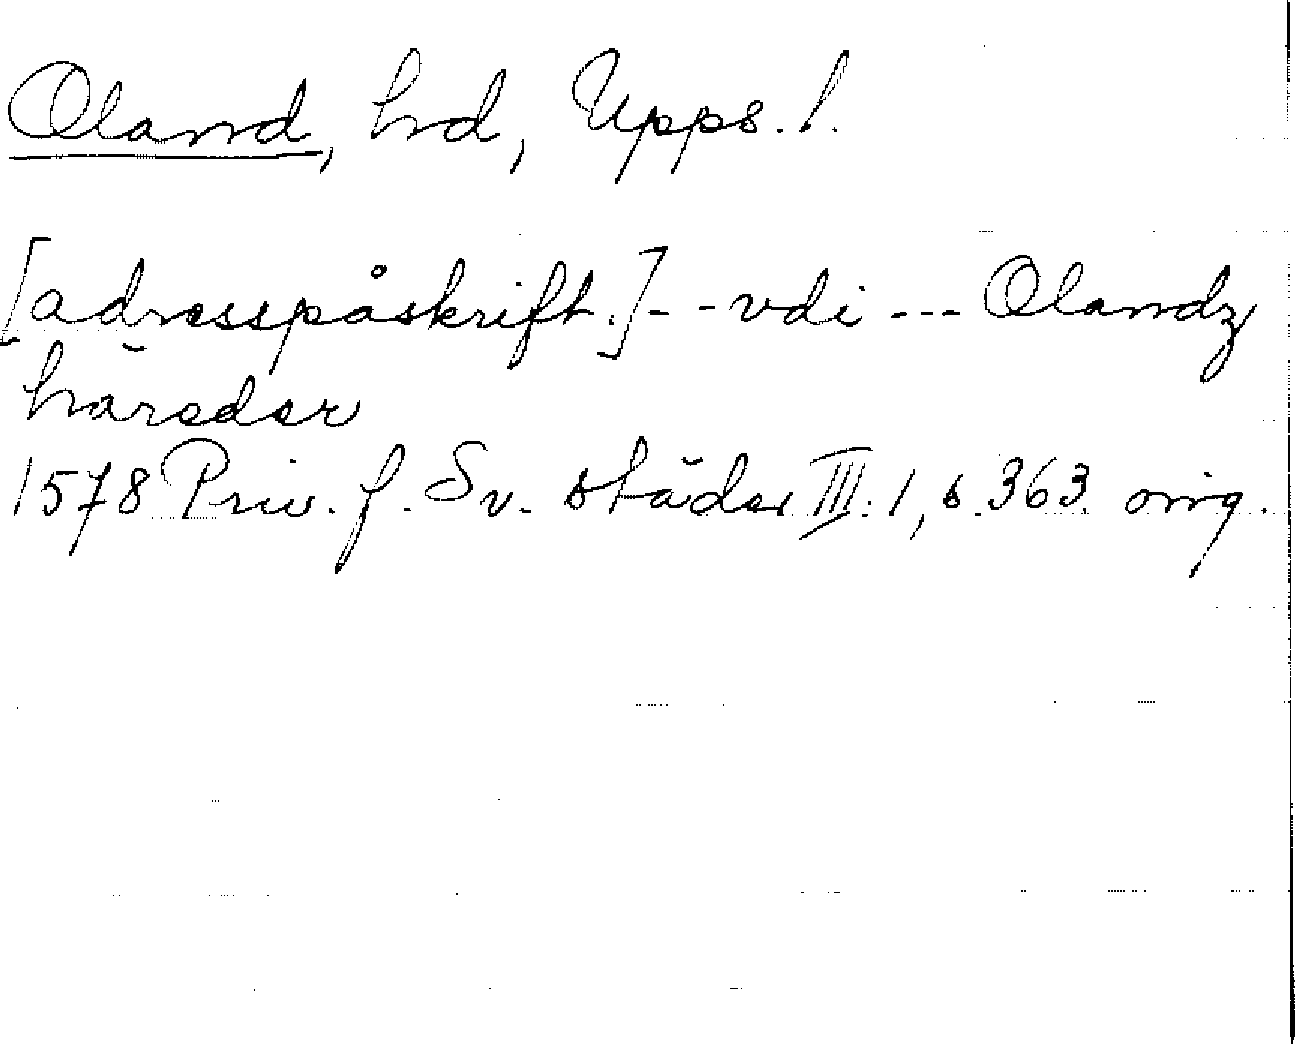 Oland, hd, Upps. l.
[adresspåskrift.] - - vdi --- Olandz
häreder
1578 Priv. f. Sv. städer III:1, s. 363. orig.